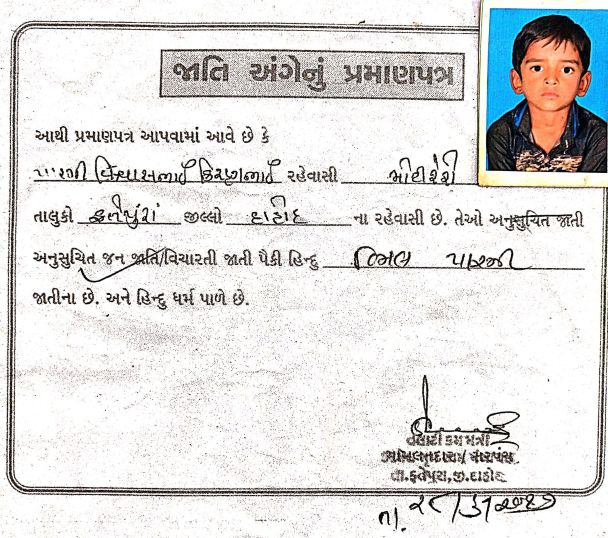 જાતિ અંગેનું પ્રમાણપત્ર
આથી પ્રમાણપત્ર આપવામાં આવે છે કે
પારગી વિશ્વાસભાઈ કિરણભાઈ રહેવાસી
તાલુકો ફતેપુરા જીલ્લો દાહોદ ના રહેવાસી છે. તેઓ અનુસુચિત જાતી
અનુસુચિત જન જાતિ/વિચારતી જાતી પૈકી હિન્દુ ભિલ પારગી
જાતીના છે. અને હિન્દુ ધર્મ પાળે છે.
તલાટી કમ મંત્રી
તા.ફતેપુરા, જી.દાહોદ
તા.